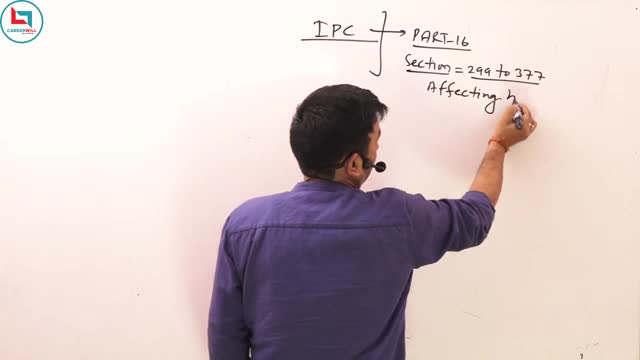 CAREERWILL
IPC
PART-16
Section = 299 to 377
Affecting h